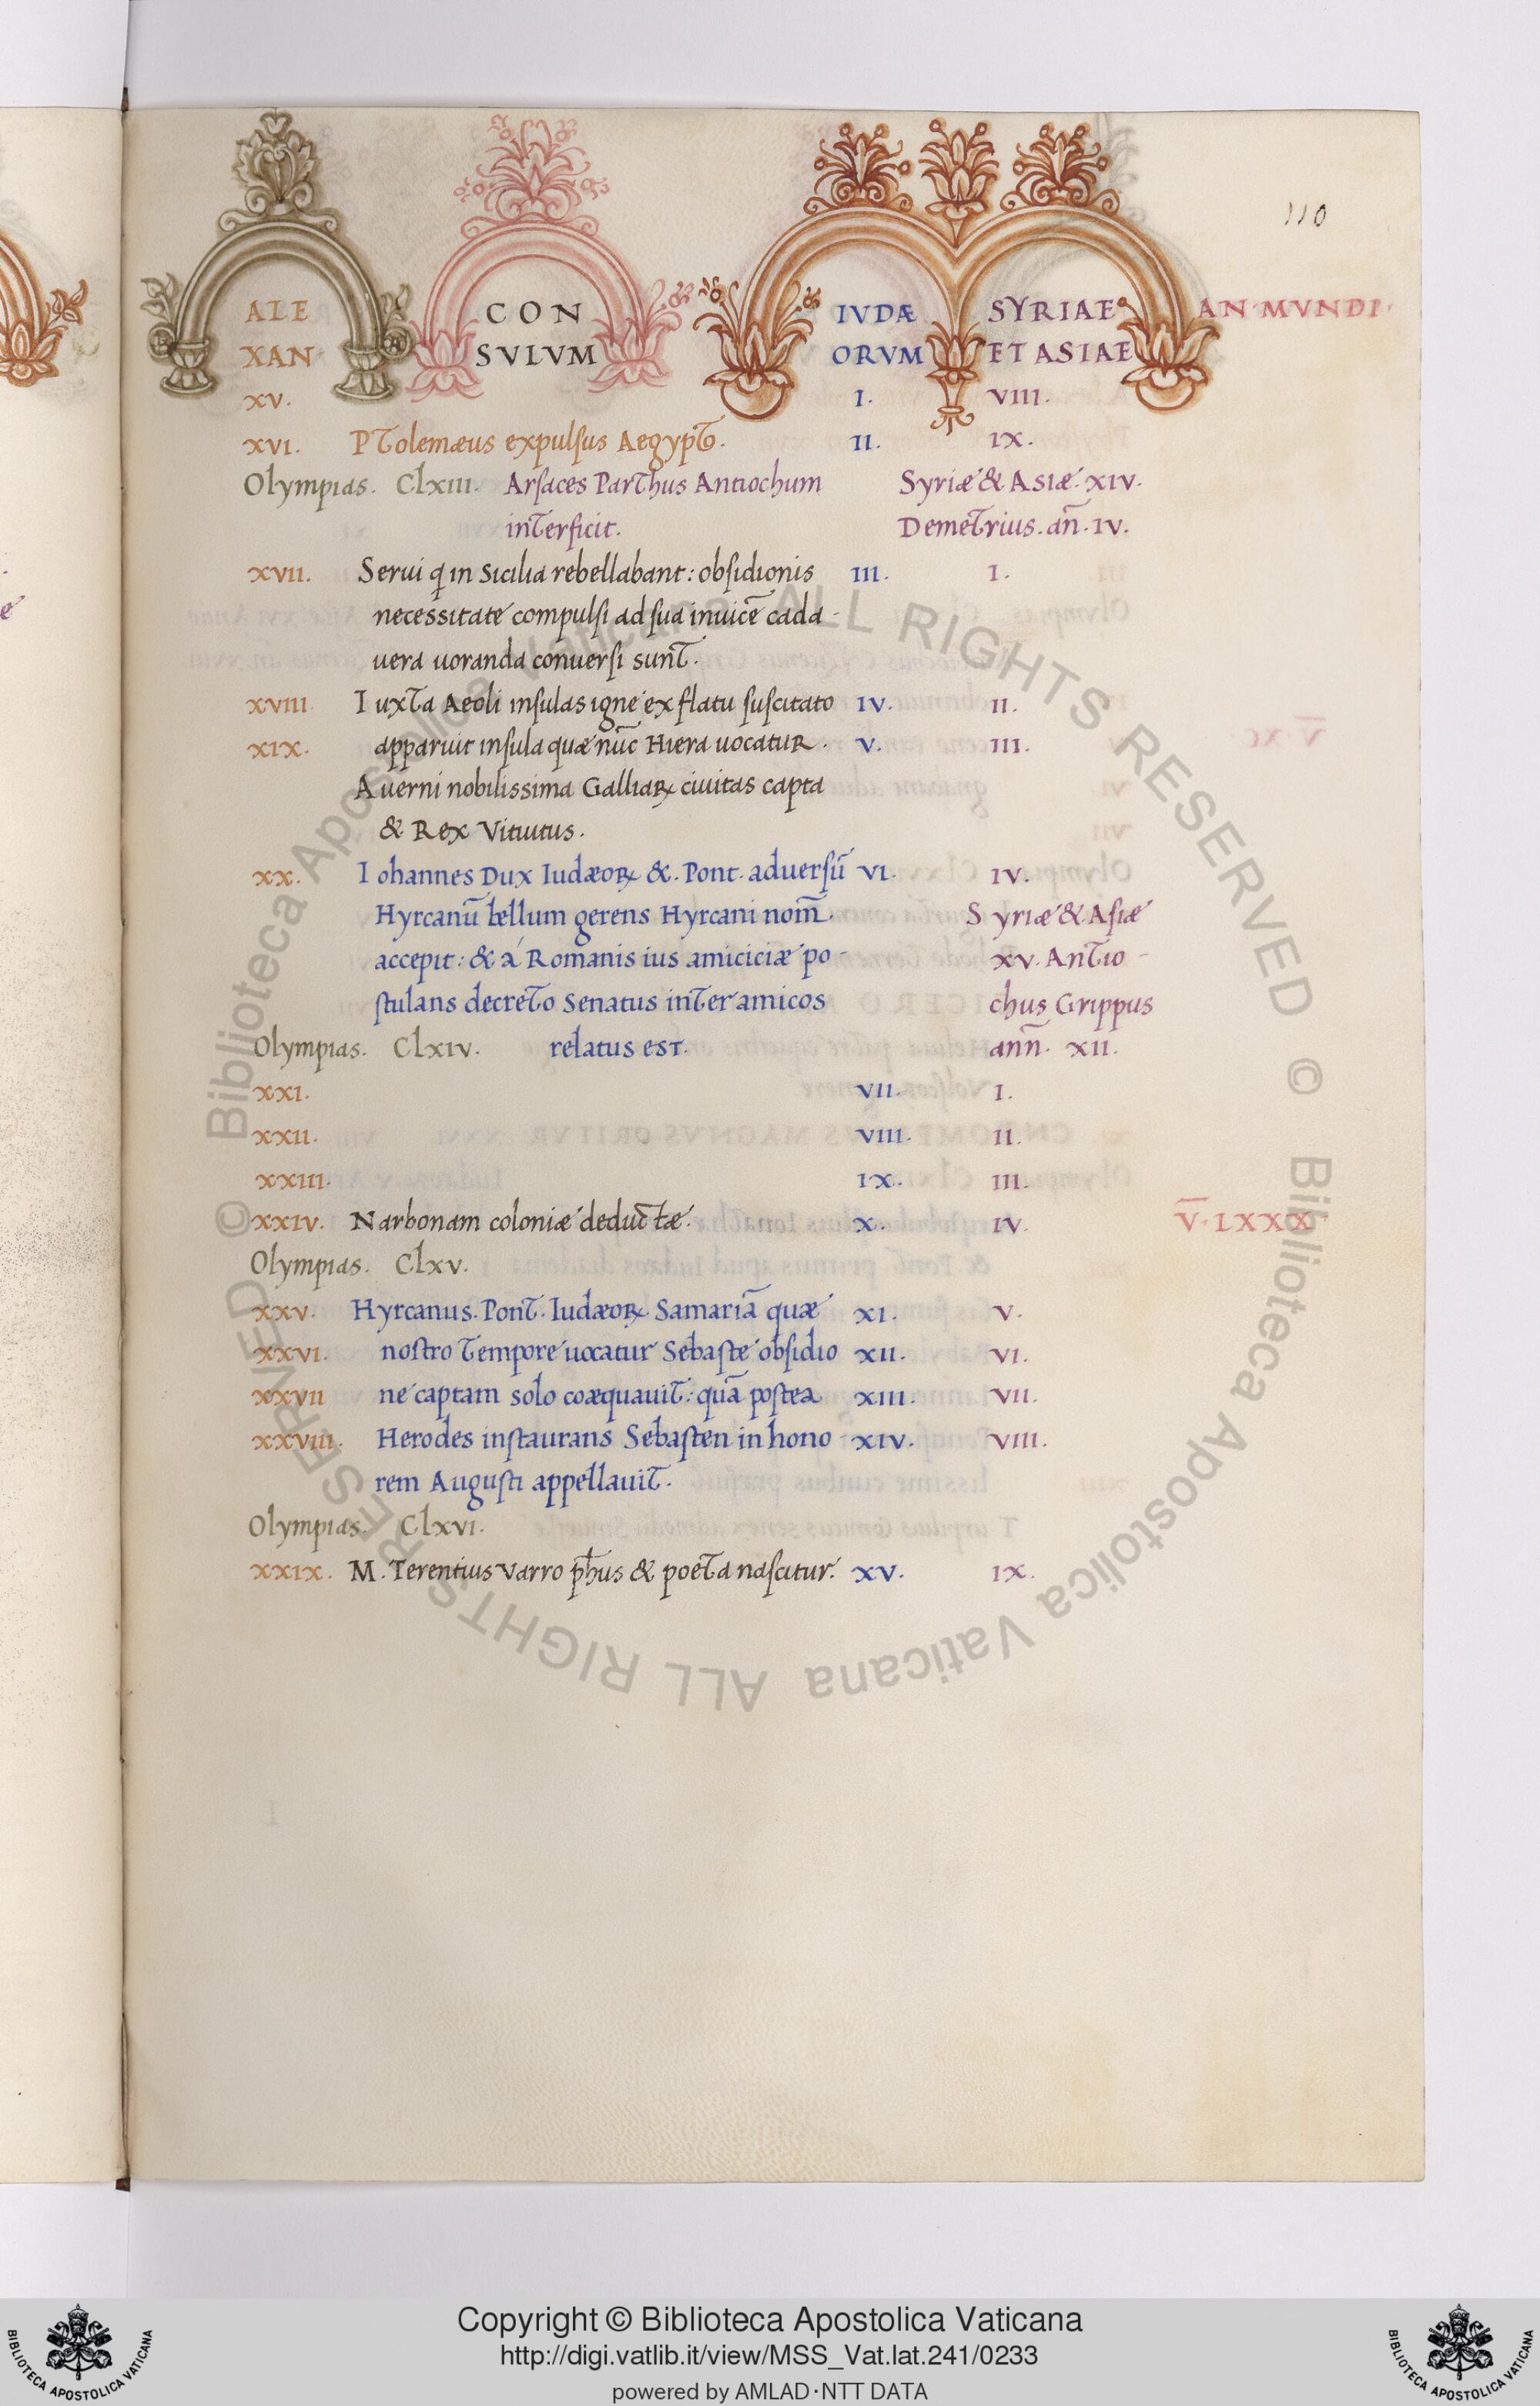 110
ALE CON IVDÆ SYRIAE AN MVNDI
XAN SVLVM ORVM ET ASIAE
XV. I. VIII.
XVI. PTolemæus expulsus AegypTo. II. IX.
Olympias. Clxiii. Arsaces ParThus Antiochum Syriæ & Asiæ. XIV.
inTerficit. DemeTrius. añ. IV.
XVII. Serui q̃ in Sicilia rebellabant: obsidionis III. I.
necessitate compulsi ad sua inuicē cada-
uera uoranda conuersi sunT.
XVIII. IuxTa Aeoli insulas igne ex flatu suscitato IV. II.
XIX. apparuit insula quæ nūc Hiera uocatur. V. III.
Auerni nobilissima Galliaꝝ ciuitas capta
& Rex Vituitus.
XX. Iohannes Dux Iudæoꝝ &. Pont. aduersū VI. IV.
Hyrcanū bellum gerens Hyrcani nom̄. Syriæ & Asiæ
accepit: & à Romanis ius amiciciæ po- XV. AnTio-
stulans decreTo Senatus inTer amicos chus Grippus
Olympias. Clxiv. relatus est. ann̄. XII.
XXI. VII. I.
XXII. VIII. II.
XXIII. IX. III.
XXIV. Narbonam coloniæ deductæ. X. IV. V̅. LXXX
Olympias. Clxv.
XXV. Hyrcanus. PonT. Iudæoꝝ Samariā quæ XI. V.
XXVI. nostro Tempore uocatur Sebaste obsidio XII. VI.
XXVII ne captam solo coæquauiT: quā postea XIII. VII.
XXVIII. Herodes instaurans Sebasten in hono XIV. VIII.
rem Augusti appellauiT.
Olympias. Clxvi.
XXIX. M. Terentius Varro ph̄us & poeTa nascitur. XV. IX.
© Biblioteca Apostolica Vaticana ALL RIGHTS RESERVED © Biblioteca Apostolica Vaticana ALL RIGHTS RESERVED
Copyright © Biblioteca Apostolica Vaticana
http://digi.vatlib.it/view/MSS_Vat.lat.241/0233
powered by AMLAD·NTT DATA
BIBLIOTECA APOSTOLICA VATICANA
BIBLIOTECA APOSTOLICA VATICANA